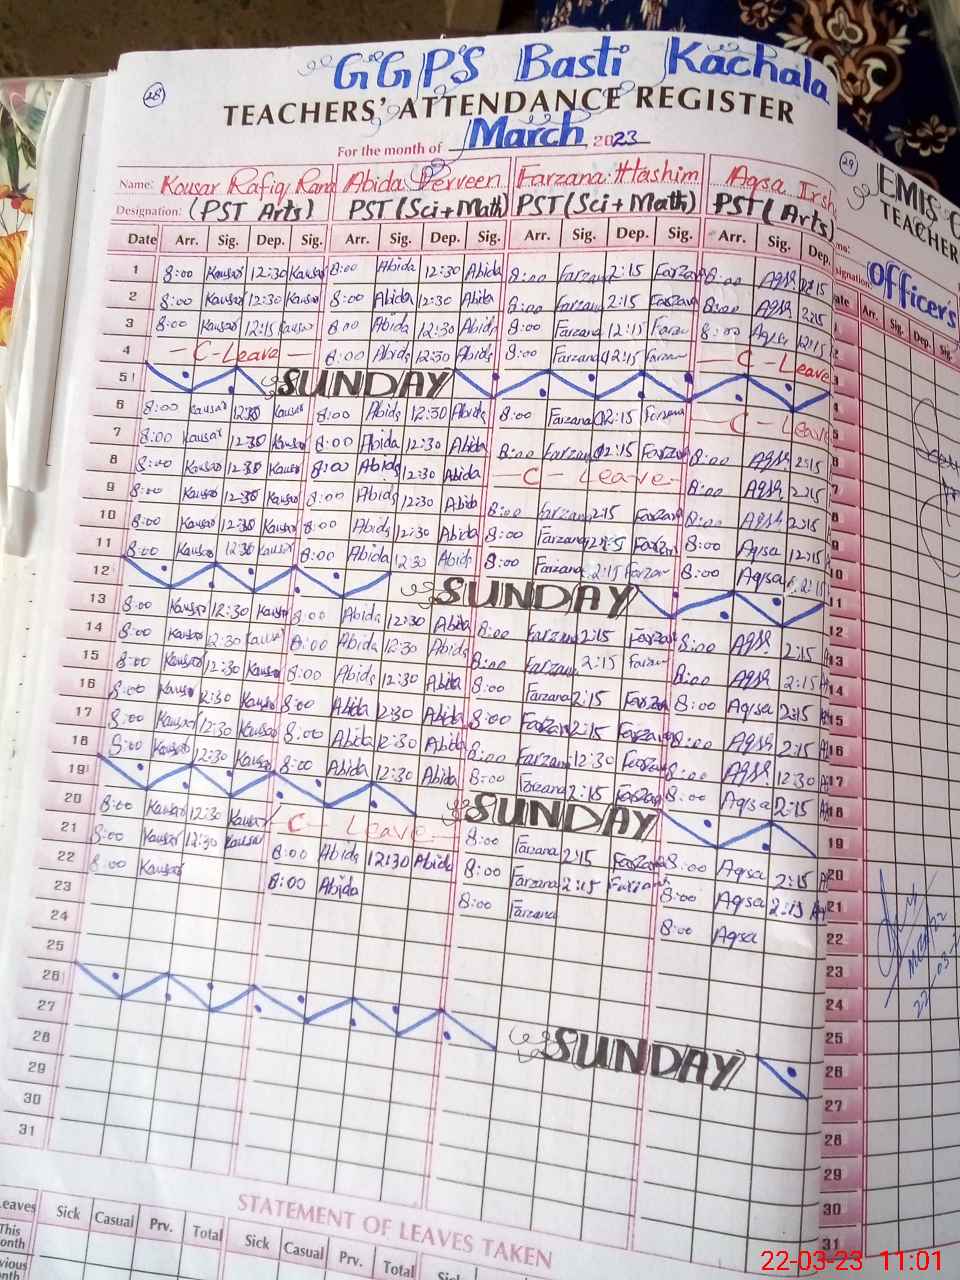 28
GGPS Basti Kachala
TEACHERS' ATTENDANCE REGISTER
For the month of March 2023
Name: Kousar Rafiq Rana Abida Perveen Farzana Hashim Aqsa Irsh
Designation: (PST Arts) PST (Sci+Math) PST (Sci+Math) PST (Arts)
Date Arr. Sig. Dep. Sig. Arr. Sig. Dep. Sig. Arr. Sig. Dep. Sig. Arr. Sig. Dep.
1 8:00 Kausar 12:30 Kausar 8:00 Abida 12:30 Abida 8:00 Farzana 2:15 Farzana 8:00 Aqsa 2:15
2 8:00 Kausar 12:30 Kausar 8:00 Abida 12:30 Abida 8:00 Farzana 2:15 Farzana 8:00 Aqsa 2:15
3 8:00 Kausar 12:15 Kausar 8:00 Abida 12:30 Abida 8:00 Farzana 12:15 Farzana 8:00 Aqsa 12:15
4 - C-Leave - 8:00 Abida 12:30 Abida 8:00 Farzana 2:15 Farzana - C-Leave
5 SUNDAY
6 8:00 Kausar 12:30 Kausar 8:00 Abida 12:30 Abida 8:00 Farzana 2:15 Farzana - C-Leave
7 8:00 Kausar 12:30 Kausar 8:00 Abida 12:30 Abida 8:00 Farzana 2:15 Farzana 8:00 Aqsa 2:15
8 8:00 Kausar 12:30 Kausar 8:00 Abida 12:30 Abida - C-Leave - 8:00 Aqsa 2:15
9 8:00 Kausar 12:30 Kausar 8:00 Abida 12:30 Abida 8:00 Farzana 2:15 Farzana 8:00 Aqsa 2:15
10 8:00 Kausar 12:30 Kausar 8:00 Abida 12:30 Abida 8:00 Farzana 2:15 Farzana 8:00 Aqsa 12:15
11 8:00 Kausar 12:30 Kausar 8:00 Abida 12:30 Abida 8:00 Farzana 2:15 Farzana 8:00 Aqsa 2:15
12 SUNDAY
13 8:00 Kausar 12:30 Kausar 8:00 Abida 12:30 Abida 8:00 Farzana 2:15 Farzana 8:00 Aqsa 2:15
14 8:00 Kausar 12:30 Kausar 8:00 Abida 12:30 Abida 8:00 Farzana 2:15 Farzana 8:00 Aqsa 2:15
15 8:00 Kausar 12:30 Kausar 8:00 Abida 12:30 Abida 8:00 Farzana 2:15 Farzana 8:00 Aqsa 2:15
16 8:00 Kausar 12:30 Kausar 8:00 Abida 12:30 Abida 8:00 Farzana 2:15 Farzana 8:00 Aqsa 2:15
17 8:00 Kausar 12:30 Kausar 8:00 Abida 12:30 Abida 8:00 Farzana 12:30 Farzana 8:00 Aqsa 12:30
18 8:00 Kausar 12:30 Kausar 8:00 Abida 12:30 Abida 8:00 Farzana 2:15 Farzana 8:00 Aqsa 2:15
19 SUNDAY
20 8:00 Kausar 12:30 Kausar C-Leave - 8:00 Farzana 2:15 Farzana 8:00 Aqsa 2:15
21 8:00 Kausar 12:30 Kausar 8:00 Abida 12:30 Abida 8:00 Farzana 2:15 Farzana 8:00 Aqsa 2:15
22 8:00 Kausar 8:00 Abida 8:00 Farzana 8:00 Aqsa
23
24
25
26 SUNDAY
27
28
29
30
31
STATEMENT OF LEAVES TAKEN
Leaves Sick Casual Prv. Total Sick Casual Prv. Total
This
29
EMIS
TEACHER
Officer's
Arr. Sig. Dep. Sig.
11
12
13
14
15
16
17
18
19
20
21
22
23
24
25
26
27
28
29
30
31
22-03-23 11:01